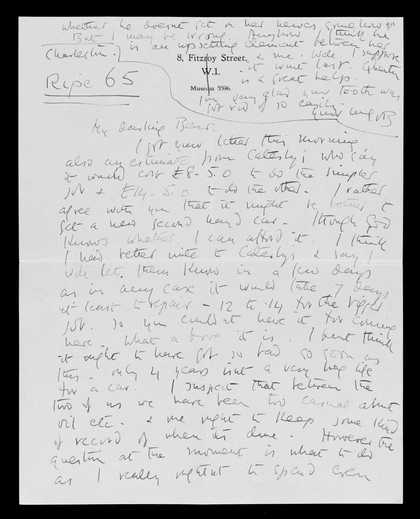 whether he doesn't get on her nerves
But I may be wrong. Anyhow I think he
is an upsetting element between her
& me
it won't last. Quentin
is a great help.
I'm very glad your tooth was
got rid of so easily
Charleston.
Ripe 65
8, Fitzroy Street,
W.1.
Museum
My darling Bear.
I got your letter this morning
also an estimate from Caterbys who say
it would cost £8-5.0 to do the simpler
job & £14-5.0 to do the other. I rather
agree with you that it might be better to
get a new second hand car. Though God
knows whether I can afford it. I think
I had better write to Caterbys & say I
will let them know in a few days
as in any case it would take 7 days
at least to repair - 12 to 14 for the bigger
job. So you couldn't have it for coming
here. What a bore it is. I don't think
it ought to have got so bad so soon as
this. Only 4 years isn't a very long life
for a car. I suspect that between the
two of us we have been too casual about
oil etc. & we ought to keep some kind
of record of when it's done. However the
question at the moment is what to do
as I really oughtn't to spend even